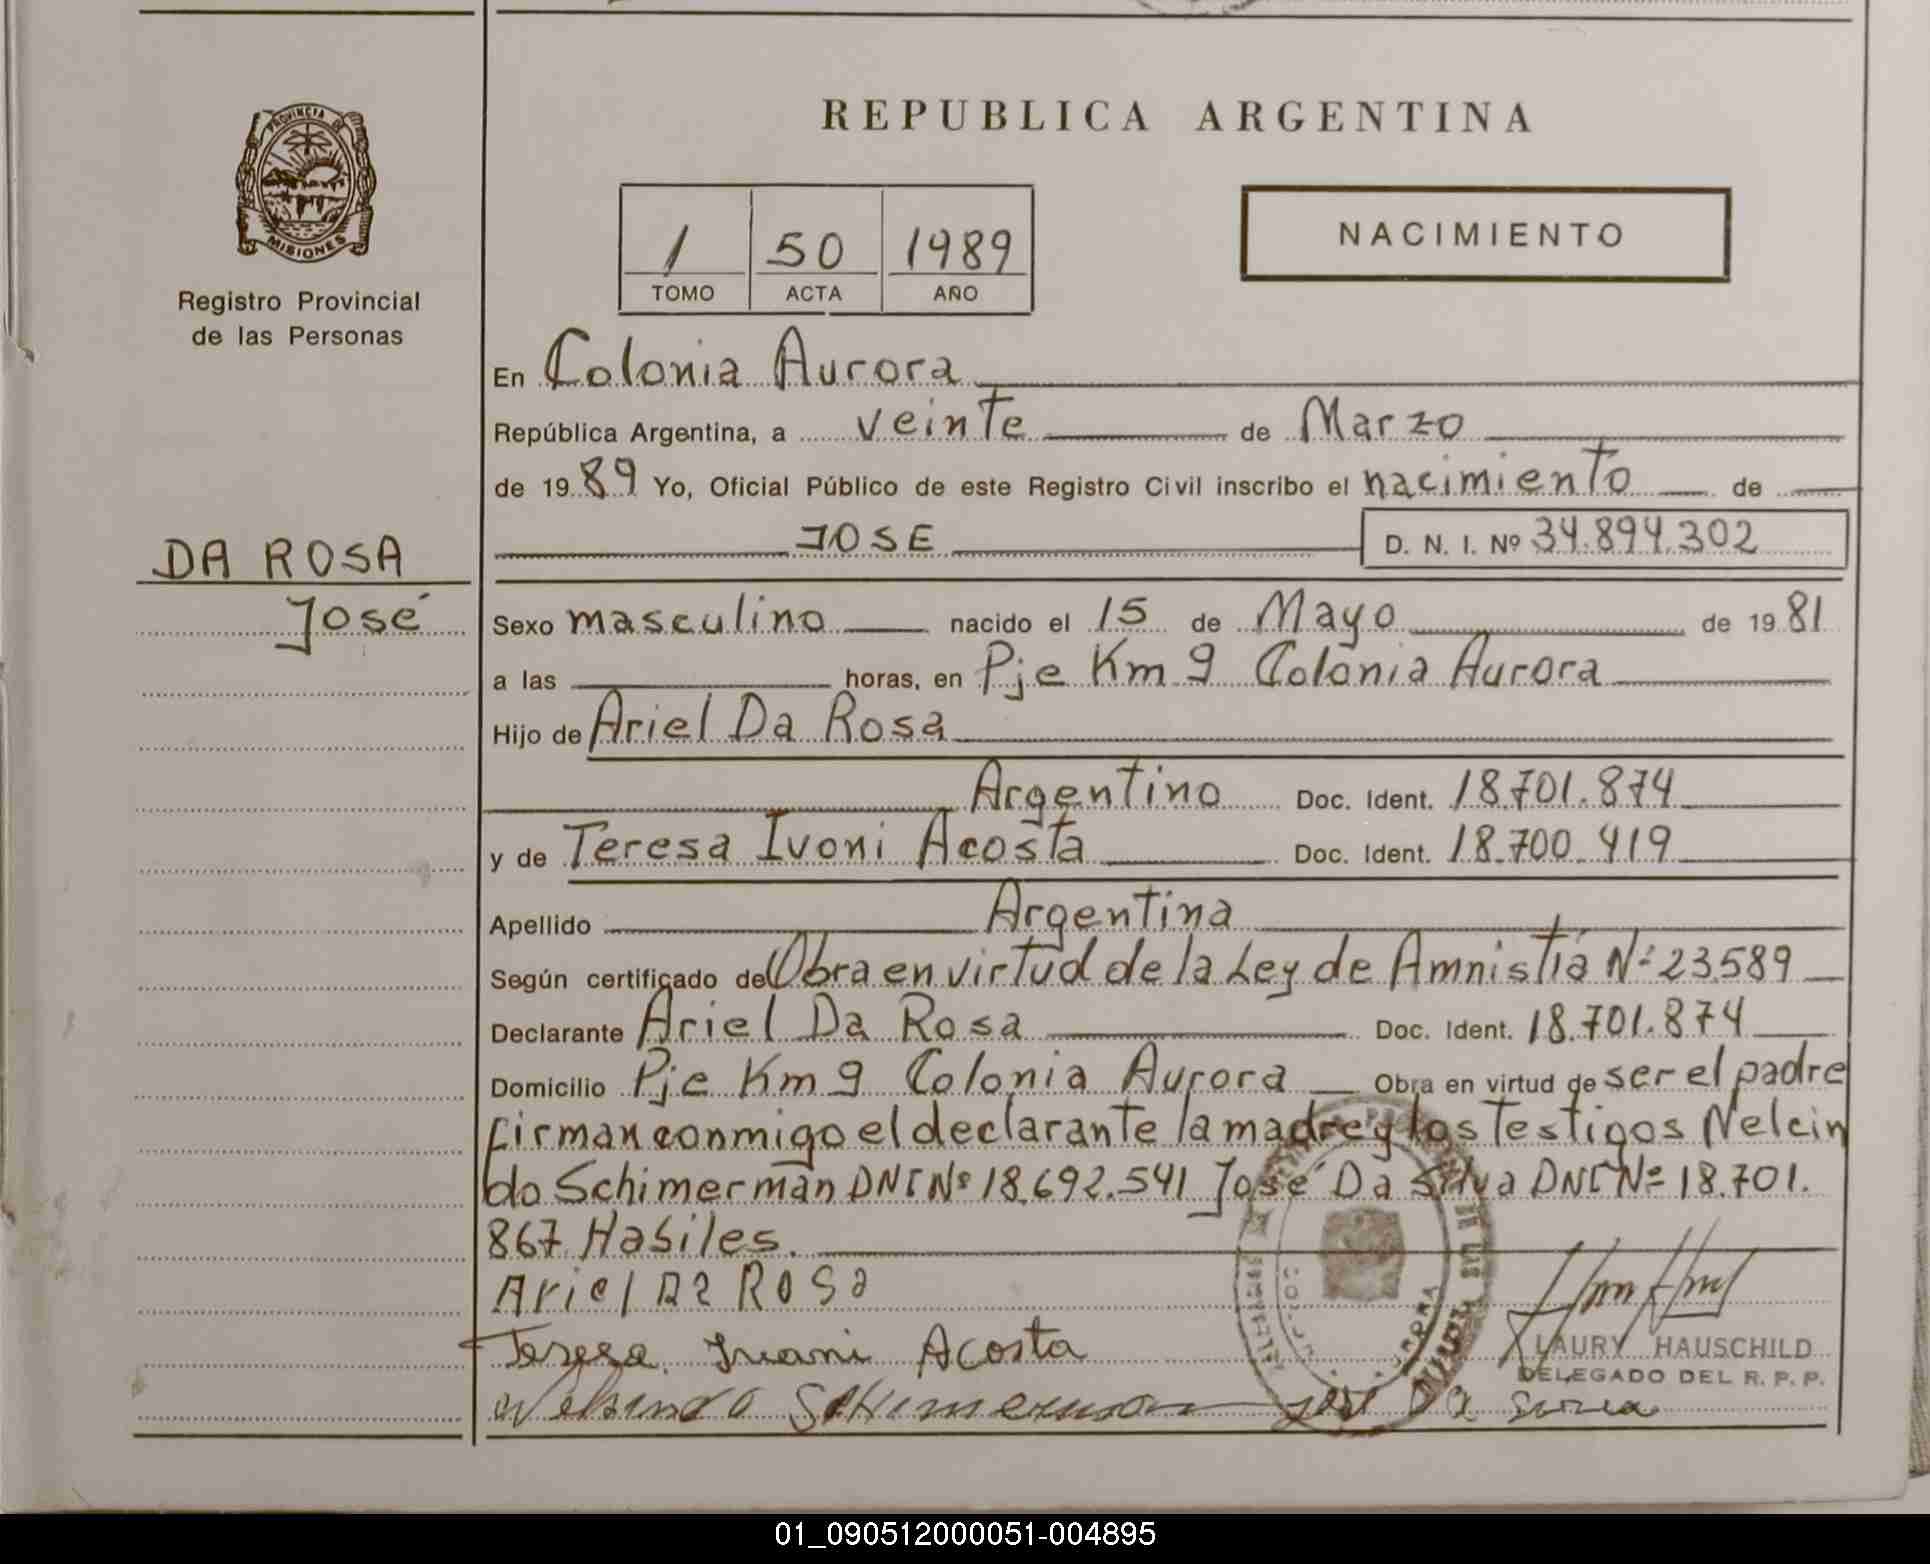 PROVINCIA DE
MISIONES
Registro Provincial
de las Personas
DA ROSA
José
REPUBLICA ARGENTINA
1 50 1989
TOMO ACTA AÑO
NACIMIENTO
En Colonia Aurora
República Argentina, a veinte de Marzo
de 1989 Yo, Oficial Público de este Registro Civil inscribo el nacimiento de
JOSE D. N. I. Nº 34.894.302
Sexo masculino nacido el 15 de Mayo de 1981
a las horas, en Pje Km 9 Colonia Aurora
Hijo de Ariel Da Rosa
Argentino Doc. Ident. 18.701.874
y de Teresa Ivoni Acosta Doc. Ident. 18.700.419
Apellido Argentina
Según certificado de Obra en virtud de la Ley de Amnistía Nº 23.589
Declarante Ariel Da Rosa Doc. Ident. 18.701.874
Domicilio Pje Km 9 Colonia Aurora Obra en virtud de ser el padre
firman conmigo el declarante la madre y los Testigos Nelcin
do Schimerman DNI Nº 18.692.541 José Da Silva DNI Nº 18.701.
867 Habiles.
Ariel Da Rosa
Teresa Ivani Acosta
LAURY HAUSCHILD
DELEGADO DEL R. P. P.
Nelsindo Schimerman José Da Silva
01_090512000051-004895